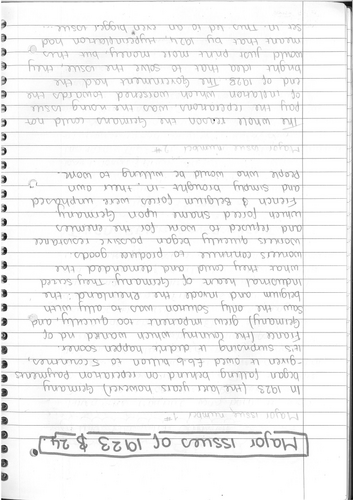 Major issues of 1923 & 24.
Major issue number 1*
In 1923 (the later years however) Germany
began falling behind on reparation payments
-given it owed £6.6 billion to 5 countries,
it's surprising it didn't happen sooner.
France (the country which wanted rid of
Germany) grew impatient too quickly, and
saw the only solution was to ally with
belgium and invade the Rheinland: the
industrial heart of Germany. They seized
what they could and demanded the
workers continue to produce goods.
workers quickly began passive resistance
and refused to work for the enemies
which forced shame upon Germany
French & Belgium forces were unphased
and simply brought in their own
People who would be willing to work.
Major issue number 2*
The whole reason the Germans could not
pay the reparations was the rising issue
of inflation which worsened towards the
end of 1923. The Government had the
bright idea that to solve the issue they
would just print more money, but this
meant that by 1924, hyperinflation had
set in. This led to an even bigger issue...